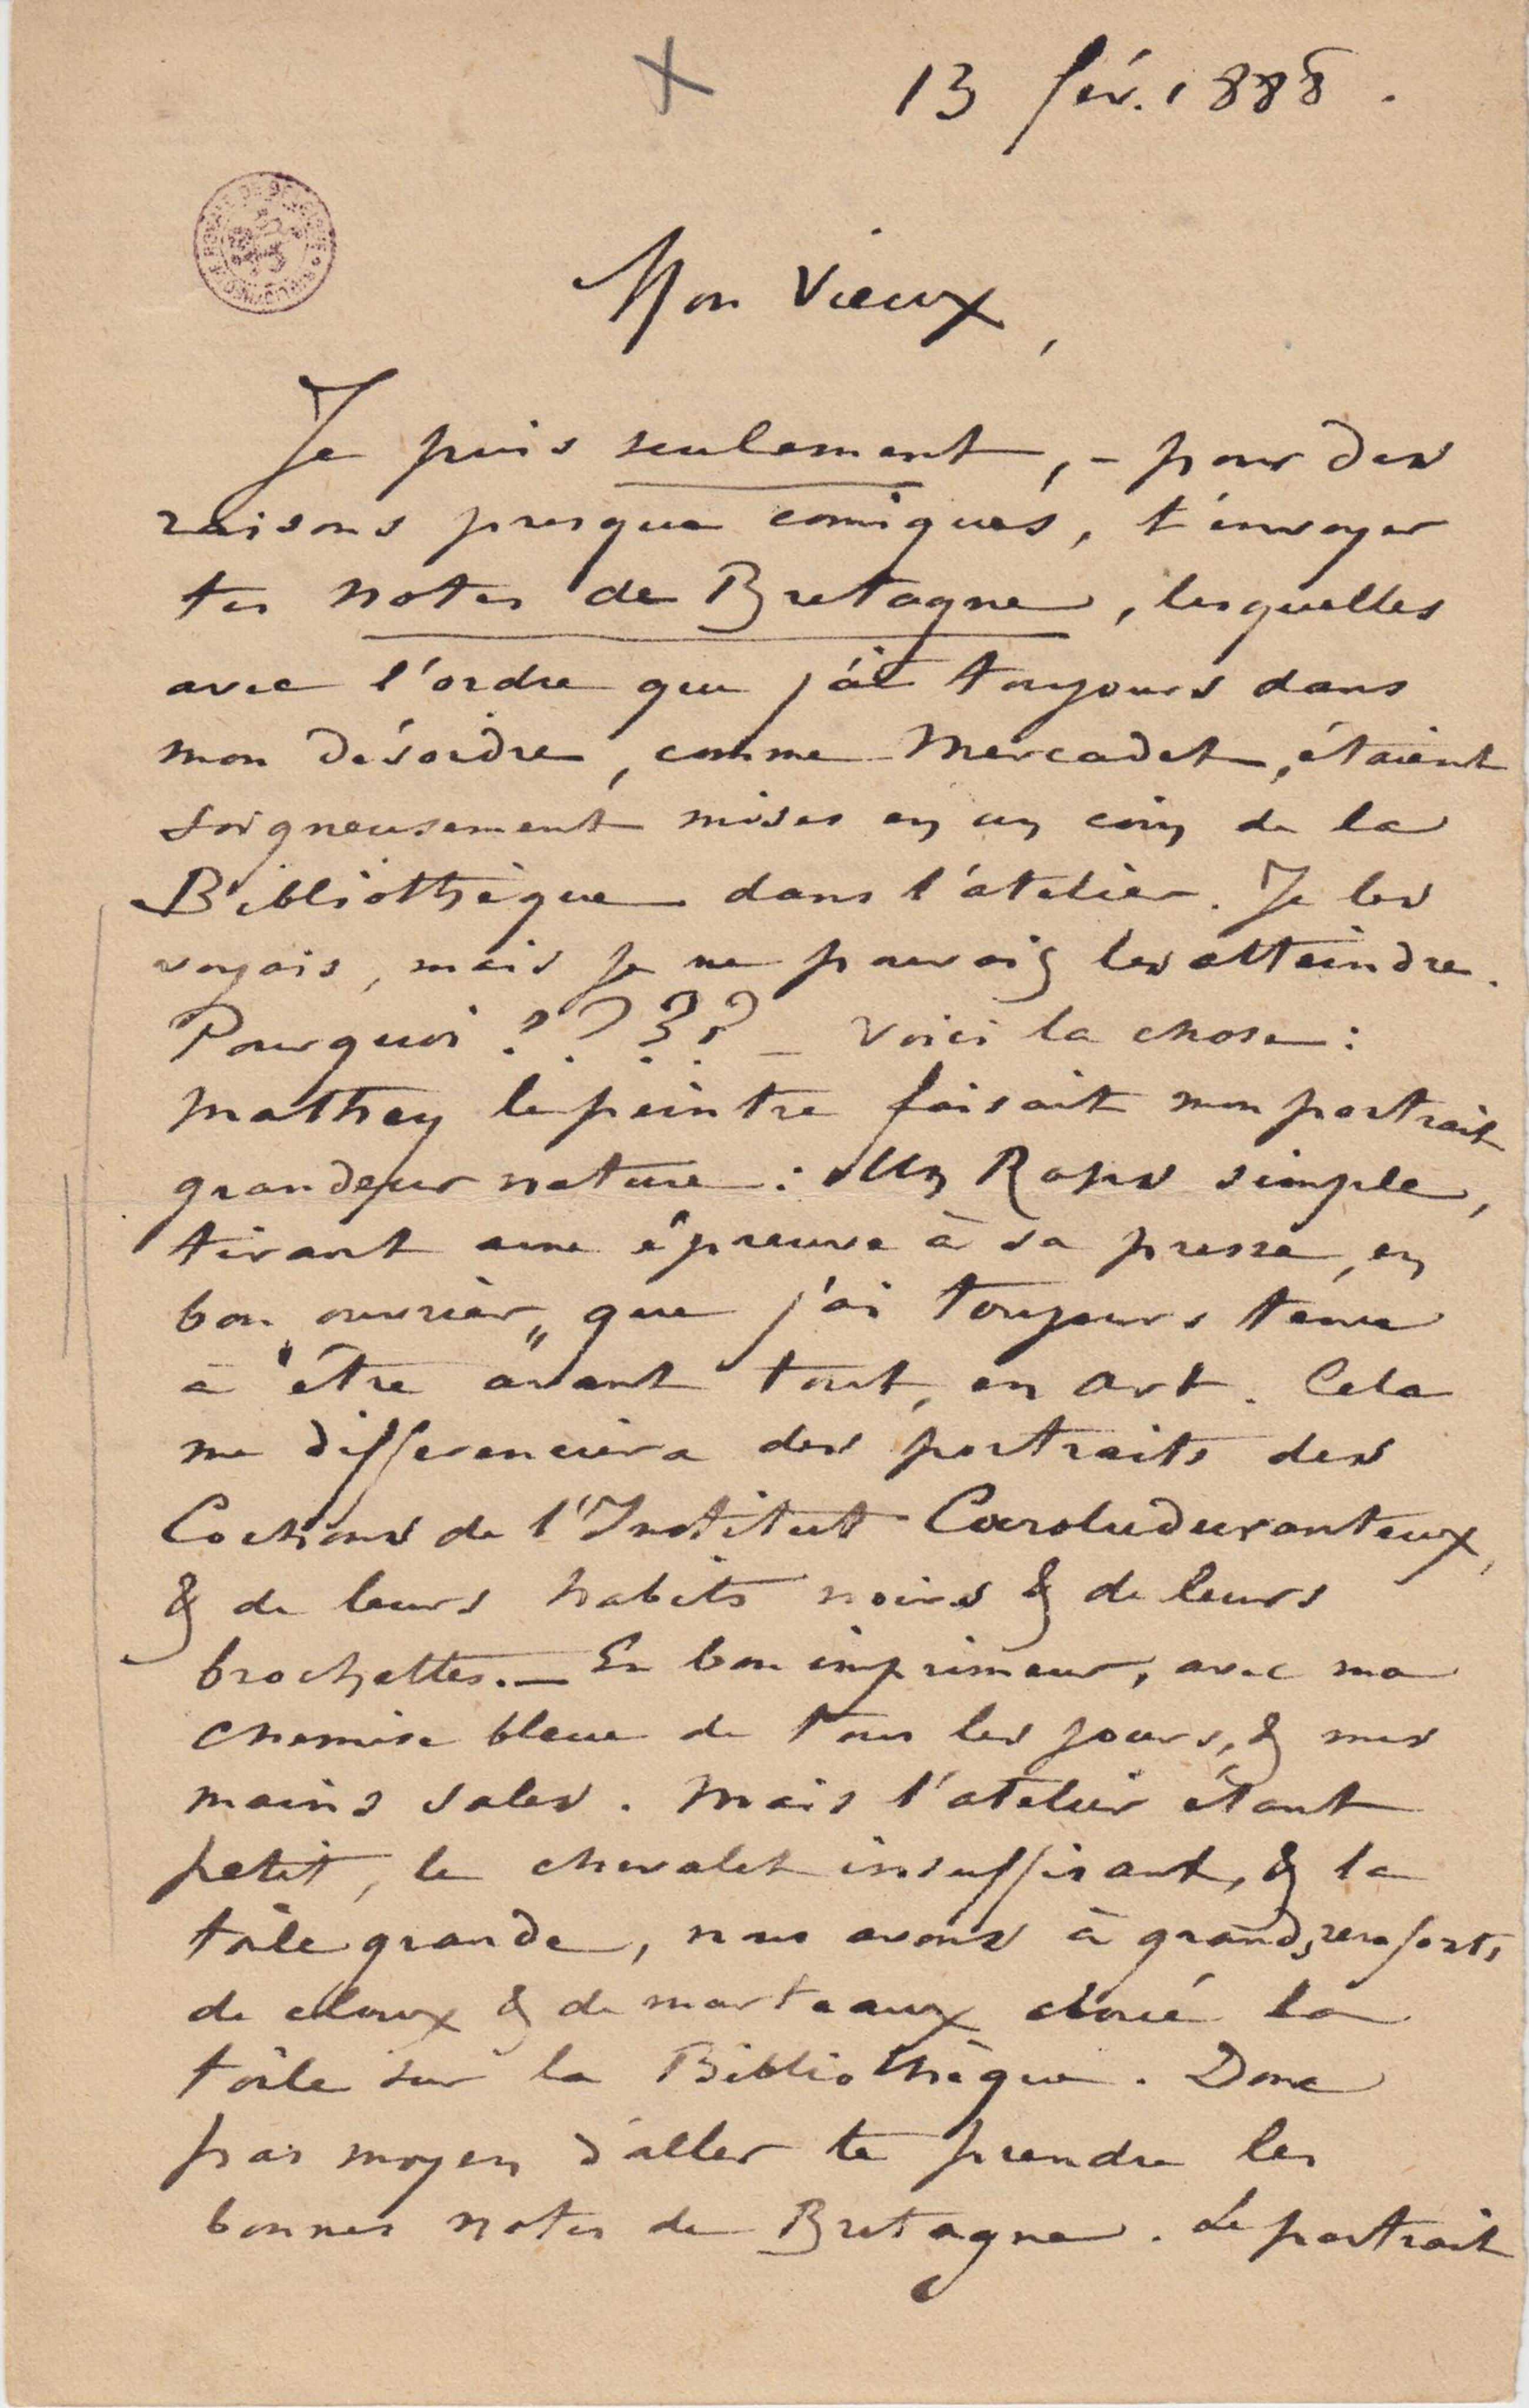 13 fév. 1888.
Mon Vieux,
Je puis seulement, – pour des
raisons presque comiques, t'envoyer
tes notes de Bretagne, lesquelles
avec l'ordre que j'ai toujours dans
mon désordre, comme Mercadet, étaient
soigneusement mises en un coin de la
Bibliothèque dans l'atelier. Je les
voyais, mais je ne pouvais les atteindre.
Pourquoi ???? – Voici la chose :
Mathey le peintre faisait mon portrait
grandeur nature : Un Rops simple,
tirant une épreuve à sa presse, en
bon ouvrier „ que j'ai toujours tenu
à "être avant tout, en art. Cela
me differenciera des portraits des
Cochons de l'Institut Caroluduranteux,
& de leurs habits noirs & de leurs
brochettes. — En bon imprimeur, avec ma
chemise bleue de tous les jours, & mes
mains sales. Mais l'atelier étant
petit, le chevalet insuffisant, & la
toile grande, nous avons à grands renforts
de cloux & de marteaux cloué la
toile sur la Bibliothèque. Donc
pas moyen d'aller te prendre les
bonnes notes de Bretagne. Le portrait